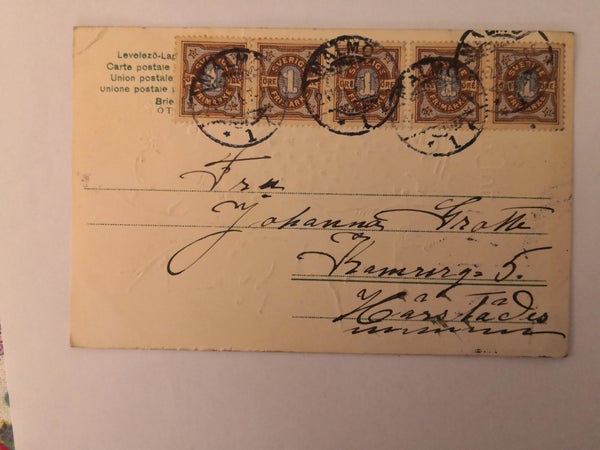 Levelező-Lap
Carte postale
Union postale
Unione postale
Brie
SVERIGE SVERIGE SVERIGE SVERIGE SVERIGE
1 ÖRE 1 ÖRE 1 ÖRE 1 ÖRE 1 ÖRE
FRIMÄRKE FRIMÄRKE FRIMÄRKE FRIMÄRKE FRIMÄRKE
MALMÖ MALMÖ MALMÖ MALMÖ
1 1 1
Fru
Johanna Grotte
5.
Härstädes